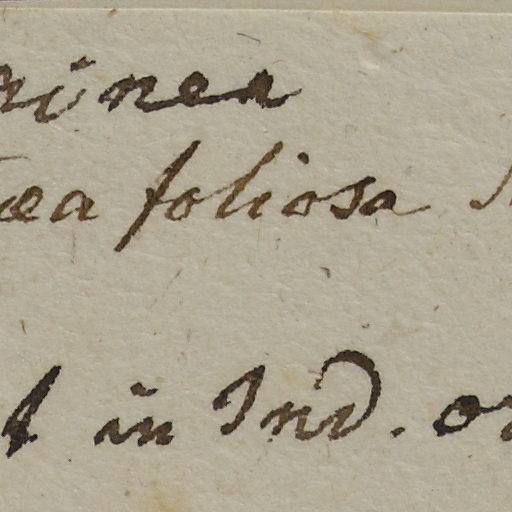 rinea
æa foliosa
t in Ind. or